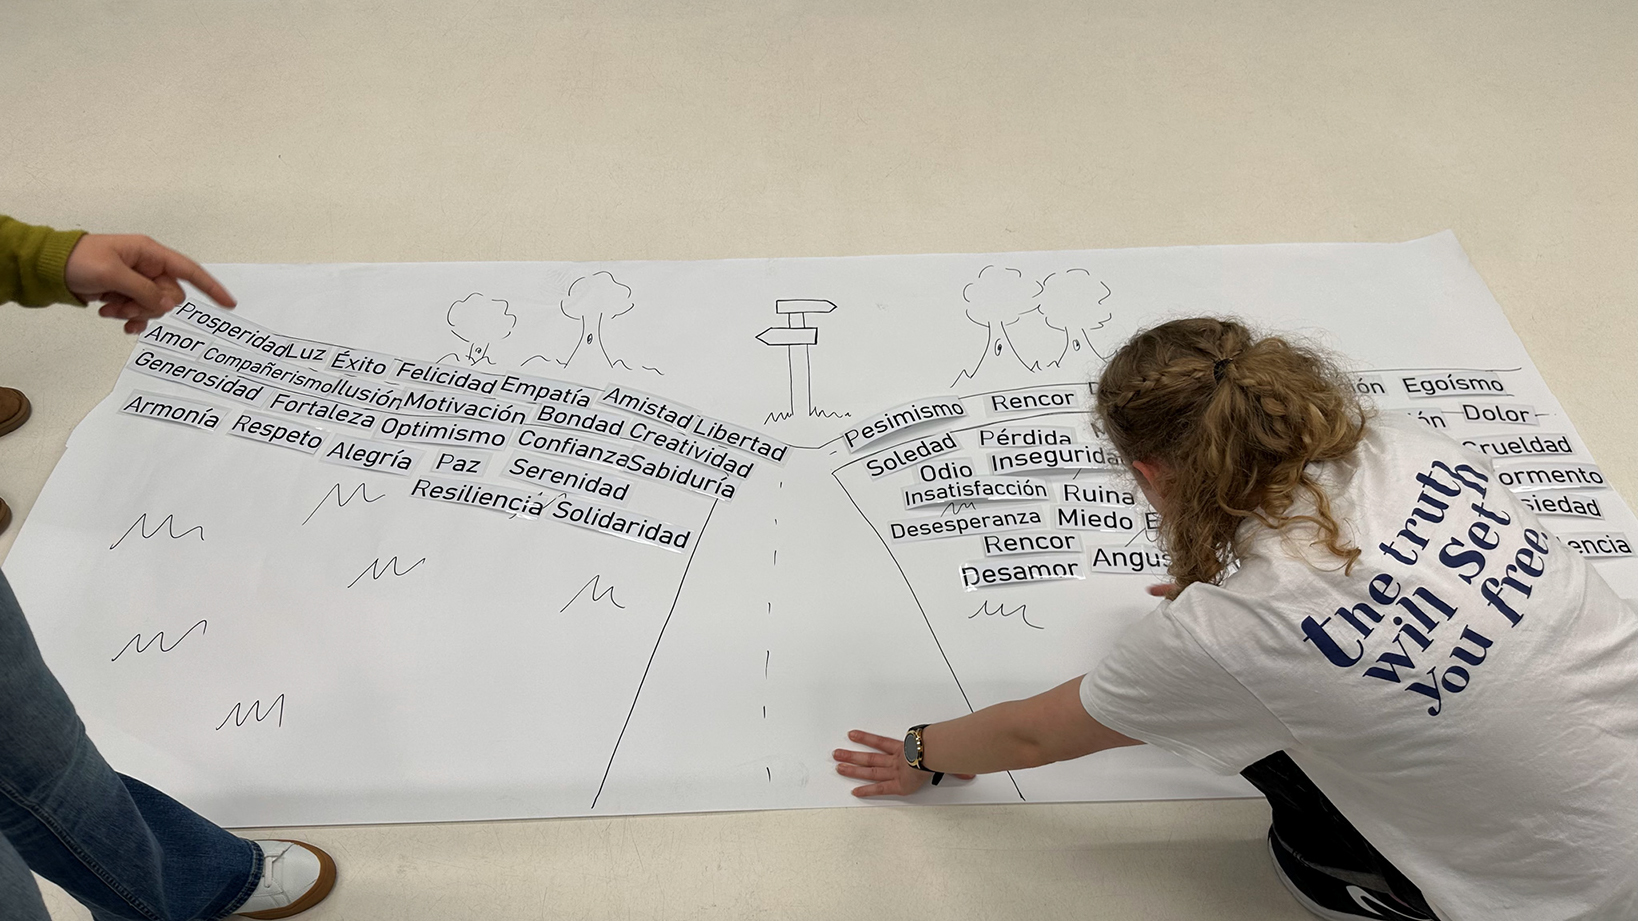 Prosperidad Luz Éxito Felicidad Empatía Amistad Libertad
Amor Compañerismo Ilusión Motivación Bondad Creatividad
Generosidad Fortaleza Optimismo Confianza Sabiduría
Armonía Respeto Alegría Paz Serenidad
Resiliencia Solidaridad
Pesimismo Rencor Egoísmo
Soledad Pérdida Dolor
Odio Inseguridad Crueldad
Insatisfacción Ruina
Desesperanza Miedo
Rencor
Desamor
the truth
will Set
you free.